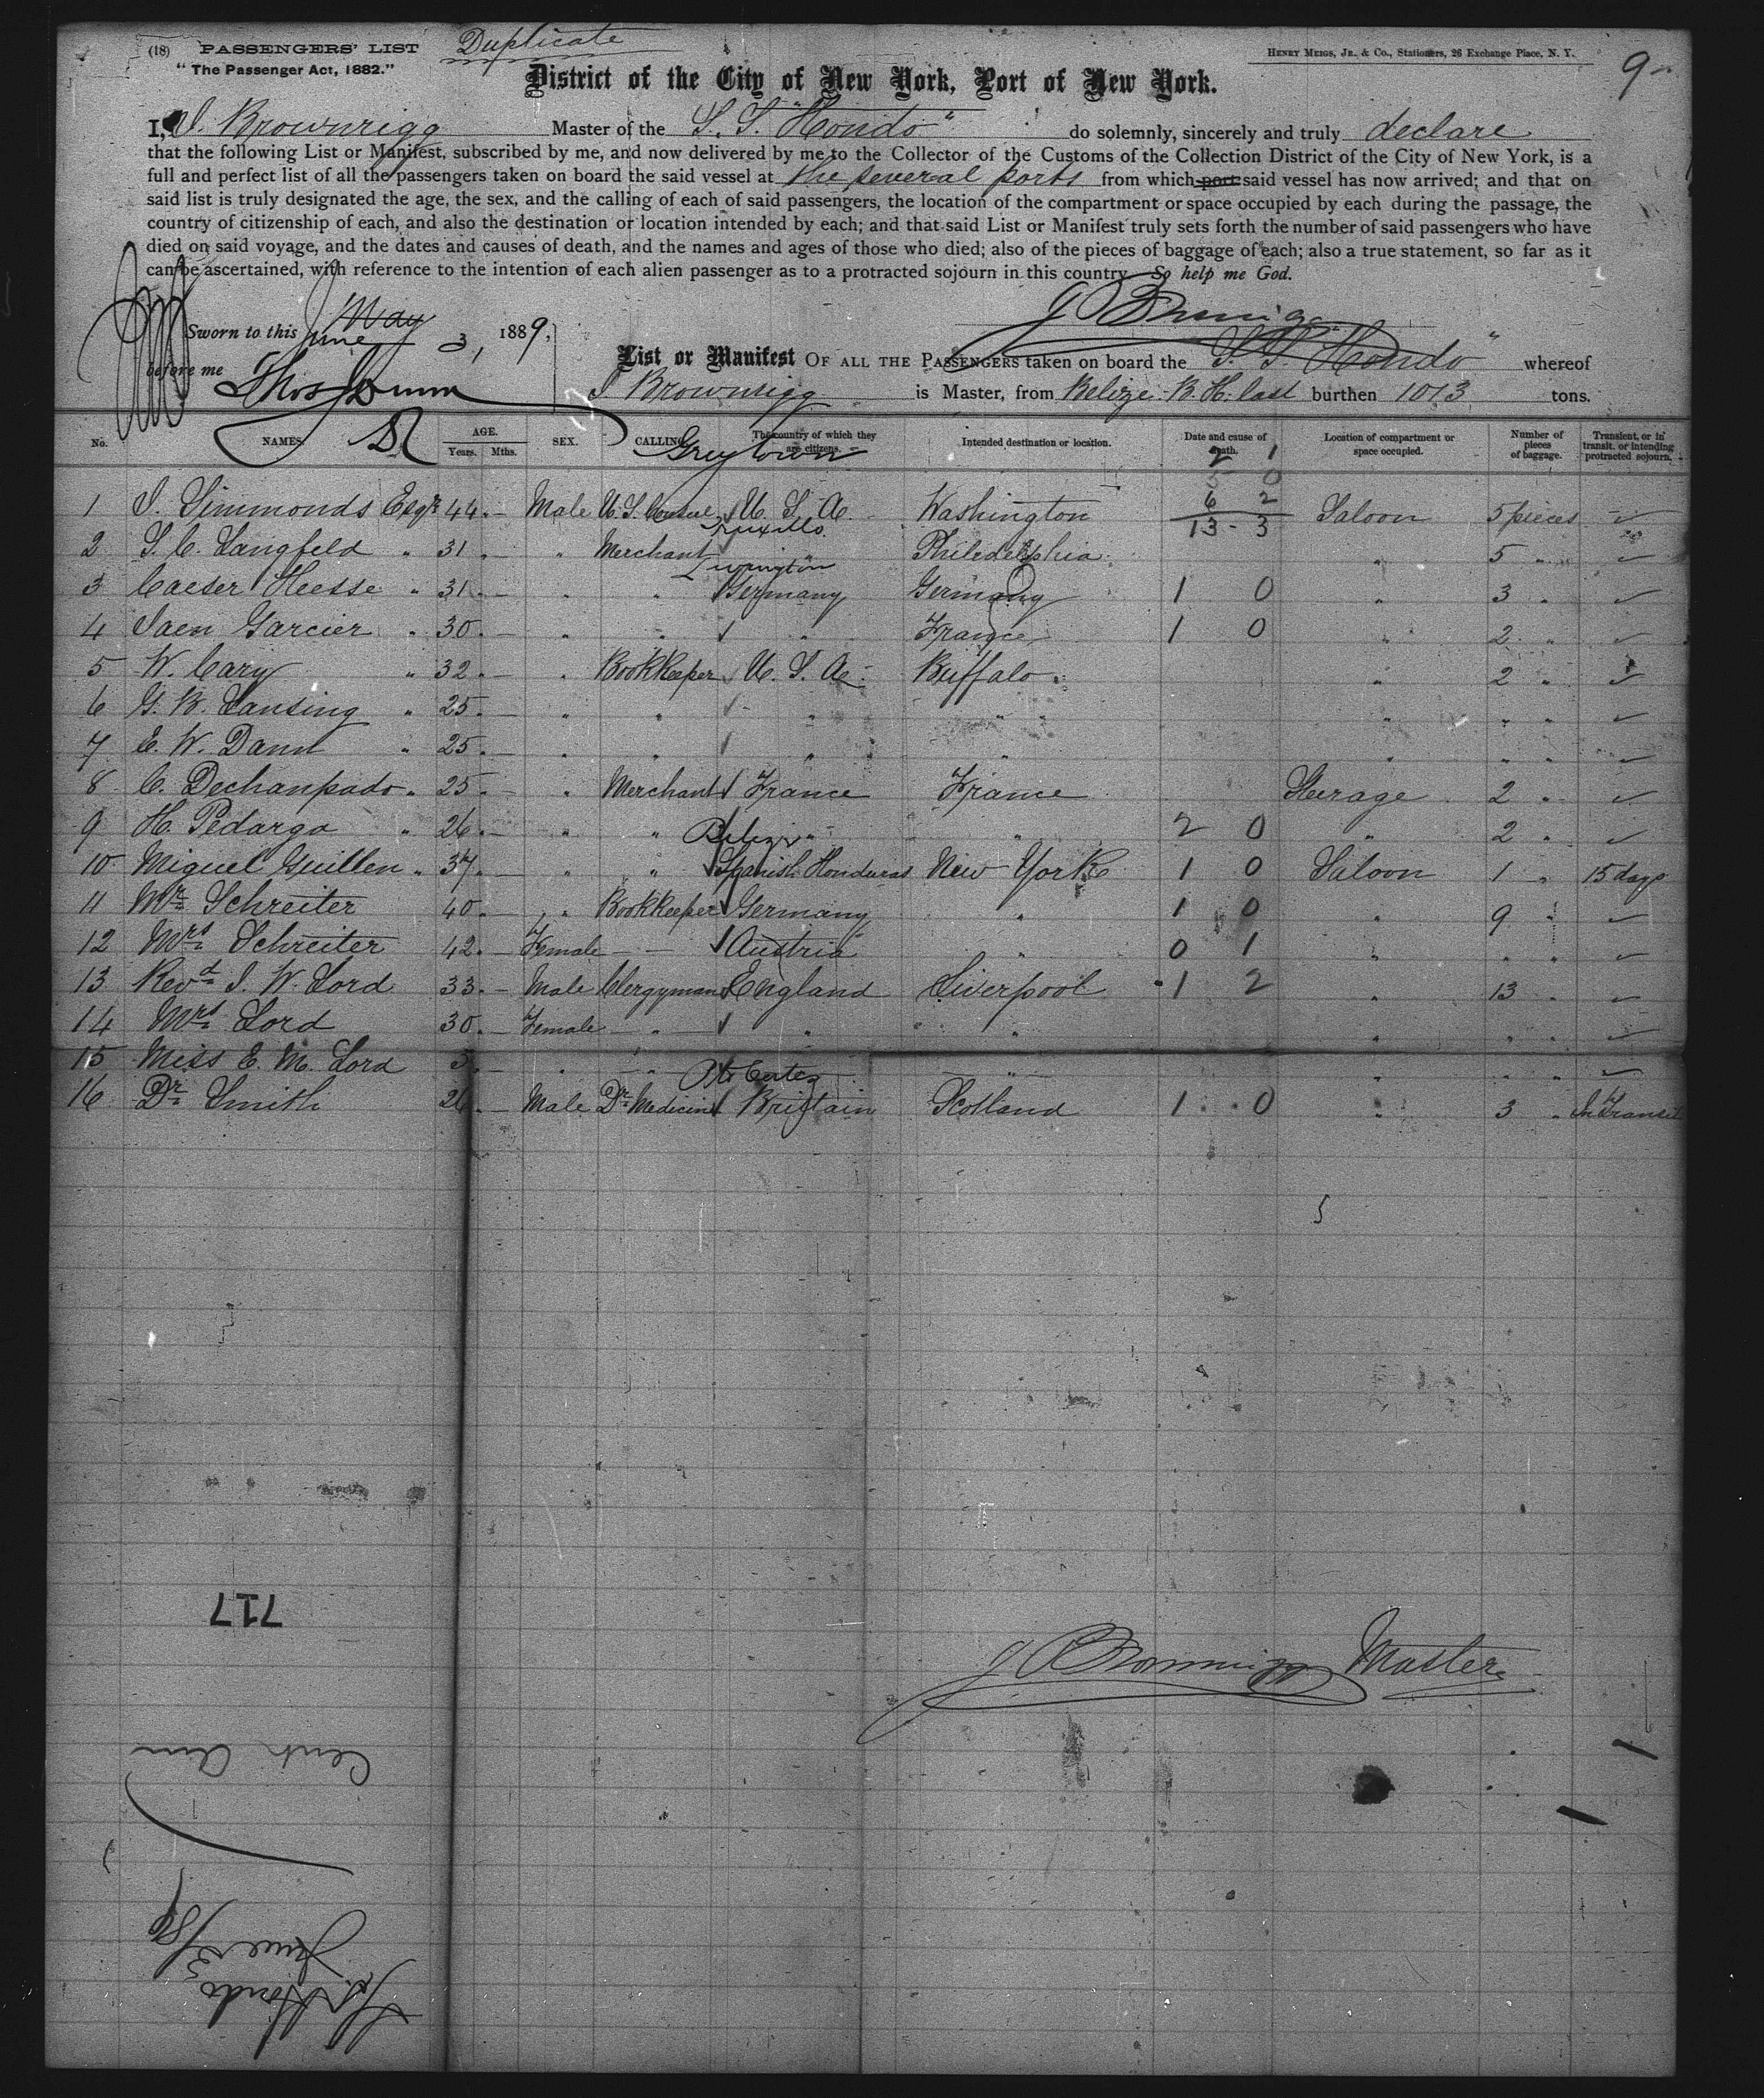 (18) PASSENGERS' LIST Duplicate HENRY MEIGS, JR. & CO., Stationers, 26 Exchange Place, N. Y. 9
"The Passenger Act, 1882."
District of the City of New York, Port of New York.
I, J. Brownrigg Master of the S. S. "Hondo" do solemnly, sincerely and truly declare
that the following List or Manifest, subscribed by me, and now delivered by me to the Collector of the Customs of the Collection District of the City of New York, is a
full and perfect list of all the passengers taken on board the said vessel at the several ports from which port said vessel has now arrived; and that on
said list is truly designated the age, the sex, and the calling of each of said passengers, the location of the compartment or space occupied by each during the passage, the
country of citizenship of each, and also the destination or location intended by each; and that said List or Manifest truly sets forth the number of said passengers who have
died on said voyage, and the dates and causes of death, and the names and ages of those who died; also of the pieces of baggage of each; also a true statement, so far as it
can be ascertained, with reference to the intention of each alien passenger as to a protracted sojourn in this country. So help me God.
J Brownrigg
Sworn to this May June 3, 1889,
before me Thos Dunn
List or Manifest OF ALL THE PASSENGERS taken on board the S. S. Hondo" whereof
J Brownrigg is Master, from Belize B. H. last burthen 1013 tons.
No. NAMES. AGE. Years. Mths. SEX. CALLING. The country of which they are citizens. Intended destination or location. Date and cause of death. Location of compartment or space occupied. Number of pieces of baggage. Transient, or in transit, or intending protracted sojourn.
D Greytown 2 1
0 0
6 2
13 - 3
1 J. Simmonds Esqr 44. — Male U. S. Consul U. S. A. Washington Saloon 5 pieces
Truxillo
2 S. C. Langfeld " 31. " Merchant " Philedelphia " 5 "
Livington
3 Caeser Heesse " 31. — " " Germany Germany 1 0 " 3 "
4 Jaen Garcier " 30. — " " " France 1 0 " 2 "
5 W. Cary " 32. — " BookKeeper U. S. A. Buffalo " 2 "
6 G. B. Lansing " 25. — " " " " " " "
7 E. W. Dann " 25. — " " " " " " "
8 C. Dechanpado " 25. — " Merchant France France Sterage 2 "
9 H. Pedarga " 26. — " " " " 2 0 " 2 "
Belize
10 Miguel Guillen " 37. — " " Spanish Honduras New York 1 0 Saloon 1 " 15 days
11 Mr Schreiter 40. — " BookKeeper Germany " 1 0 " 9 "
12 Mrs Schreiter 42. — Female — Austria " 0 1 " " "
13 Revd J. W. Lord 33. — Male Clergyman England Liverpool 1 2 " 13 "
14 Mrs Lord 30. — Female — " " " " " "
15 Miss E. M. Lord 5. — " " " " " "
Pto Cortez
16 Dr Smith 26. — Male Dr Medicine Britain Scotland 1 0 " 3 " In Transit
717
J Brownrigg Master
Cent Am
June 3/89
SS Hondo